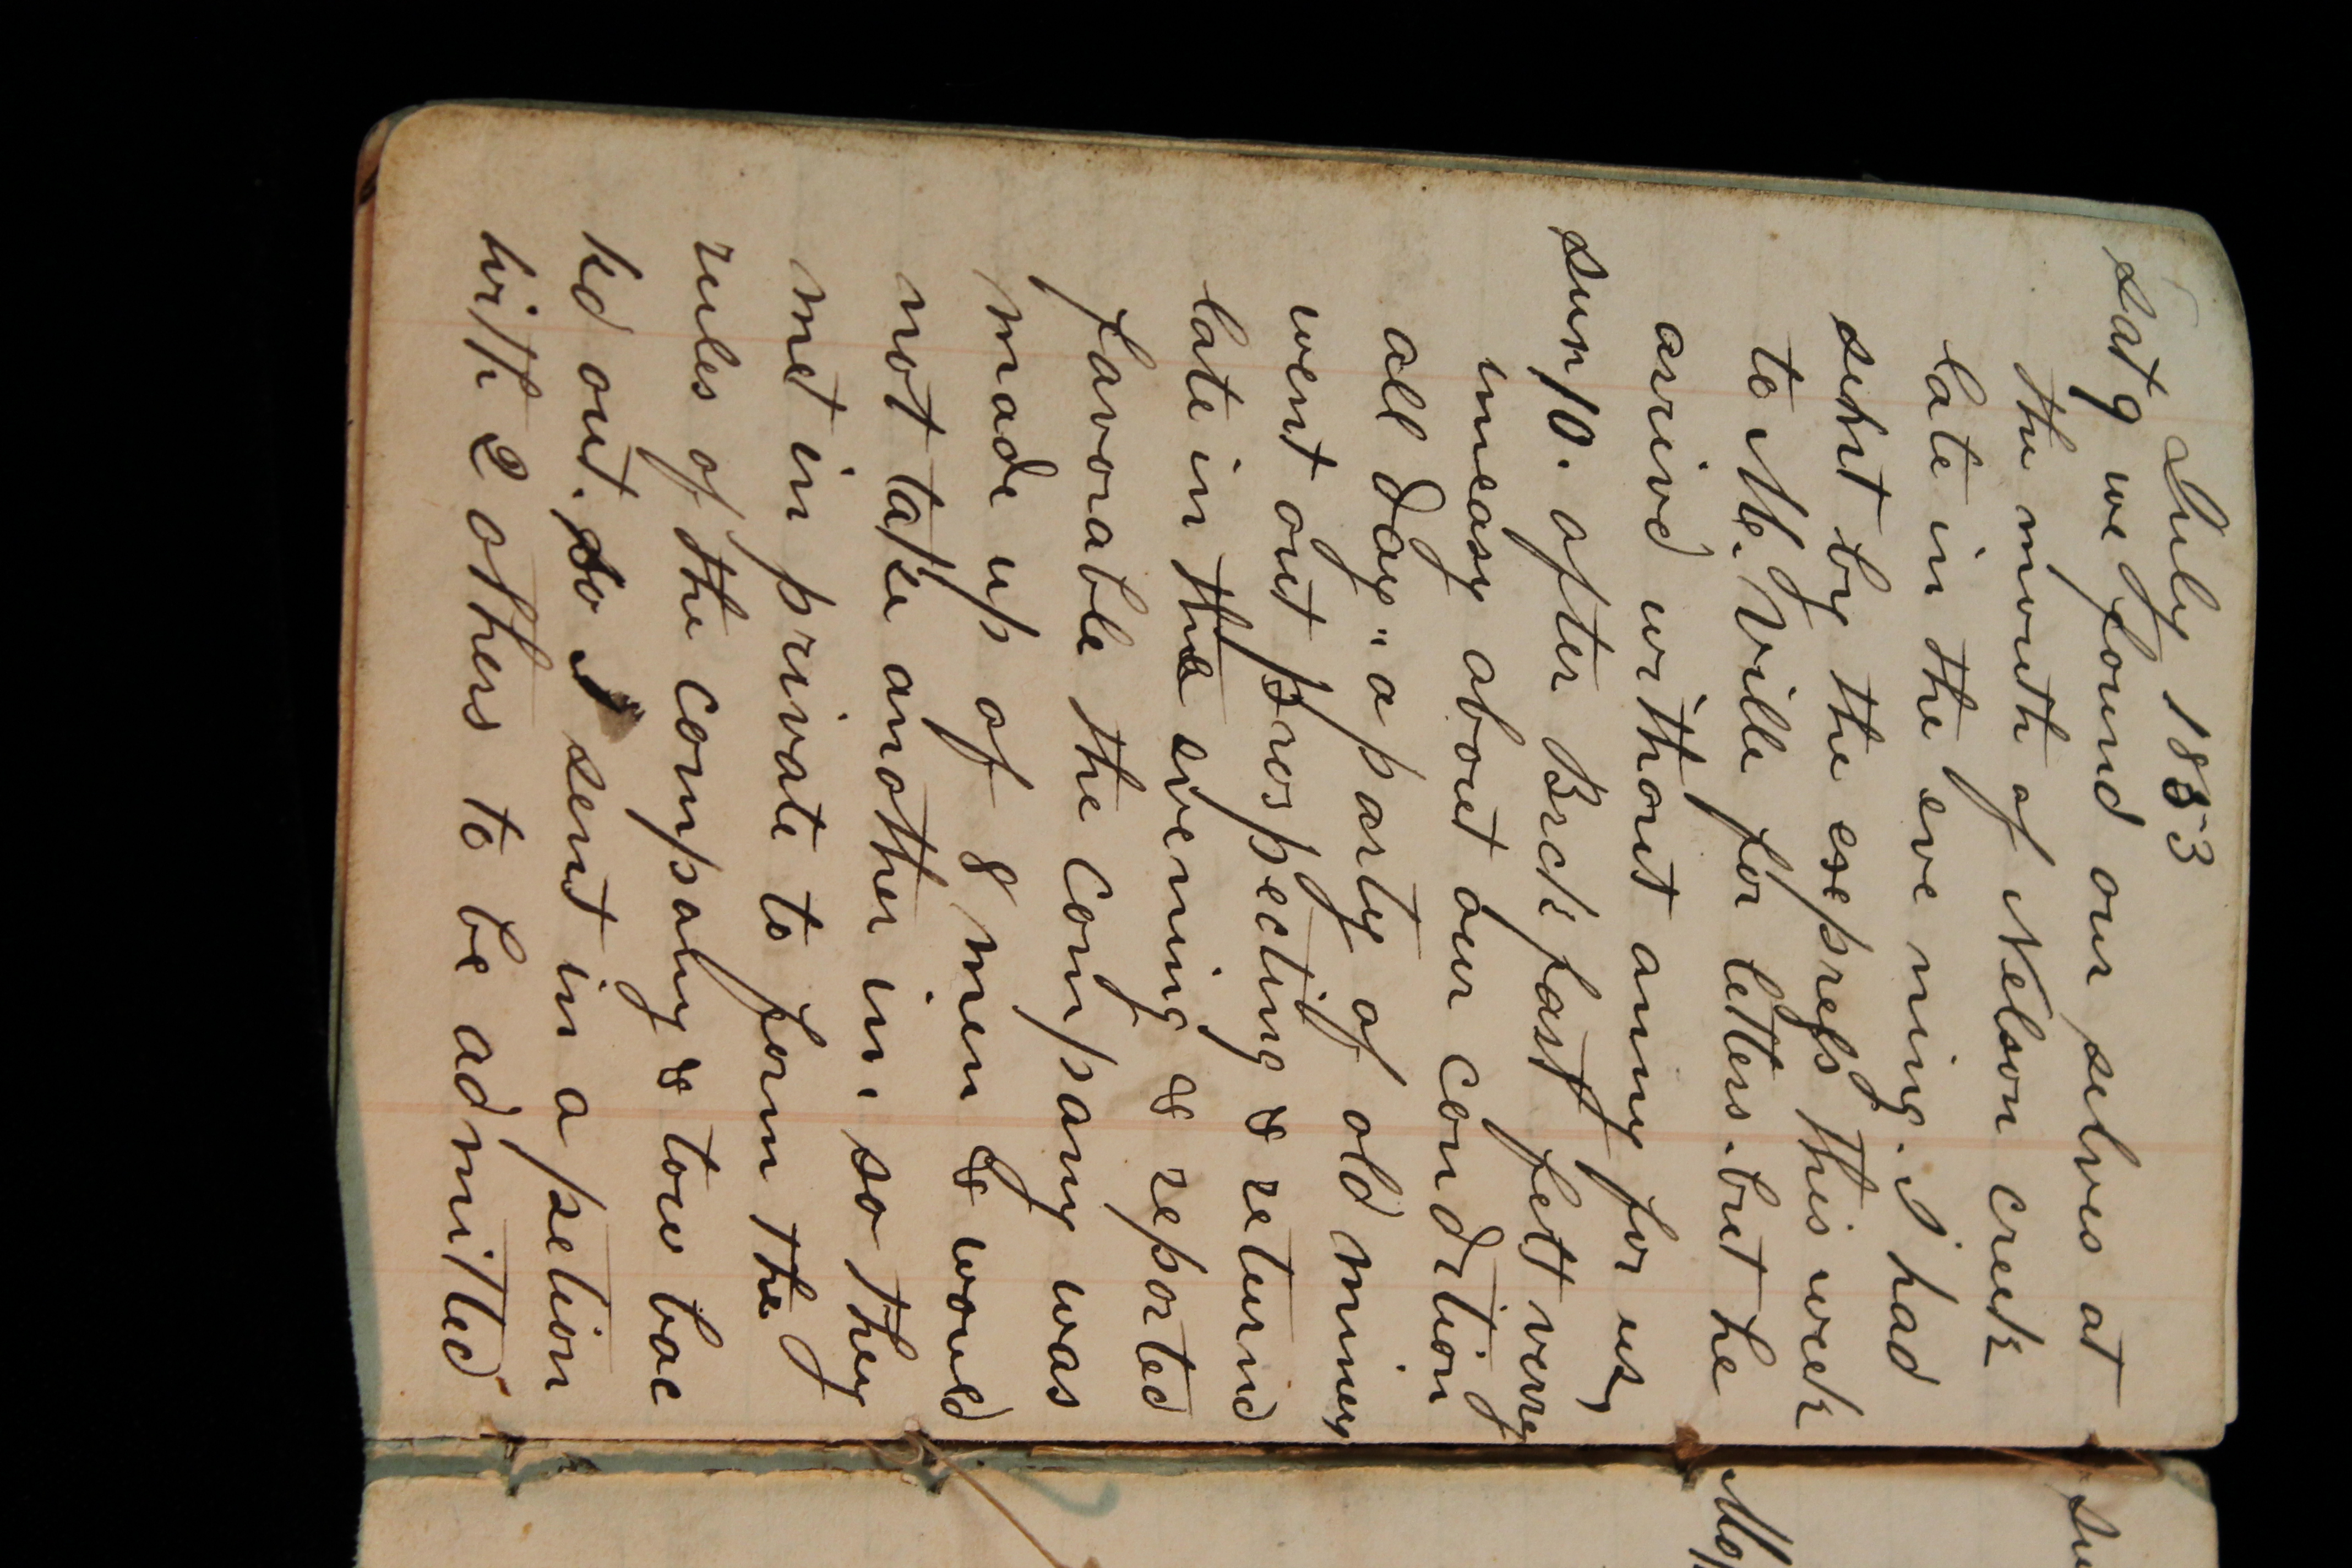 July 1853
sat 9 we found our selves at
the mouth of Nelson creek
late in the eve ning. I had
sent by the esepress this week
to M. Ville for letters. but he
arrivd without anny for us,
sun 10. after Brck fast felt verry
uneasy about our condition
all day " a party of old miners
went out prospecting & returnd
late in the evening & reported
favorable the company was
made up of 8 men & would
not take another in. so they
met in private to form the
rules of the company & tow bac
kd out. so I sent in a petion
with 2 others to be admitted
su
Mo